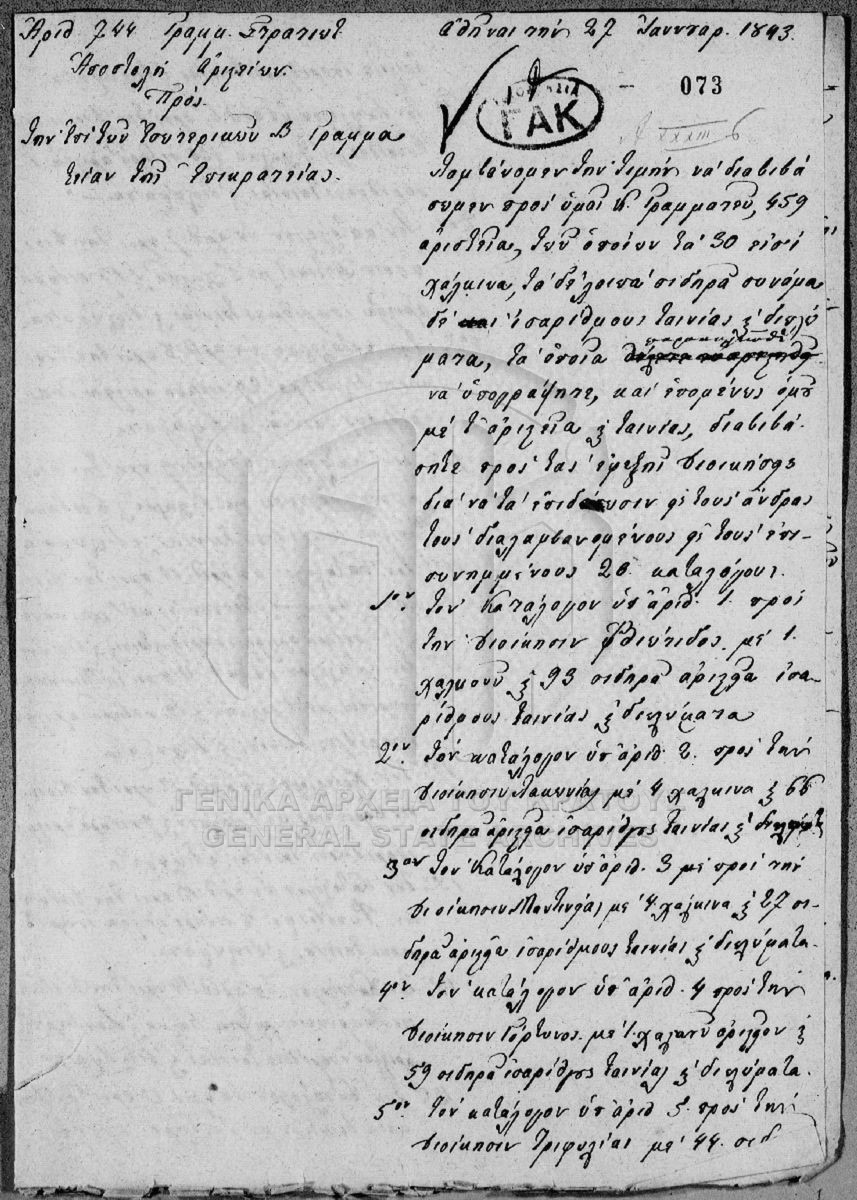 Ἀριθ 744 Γραμμ. Στρατιωτ
Ἀποστολή Ἀριστείων.
Πρός.
τήν ἐπί τῶν ἐσωτερικῶν Β Γραμμα
τείαν τῆς Ἐπικρατείας.
Ἀθῆναι τήν 27 Ἰαννουαρ. 1843.
073
ΓΑΚ
XXXIII 6
Λαμβάνομεν τήν τιμήν νά διαβιβά
σωμεν πρός ὑμᾶς Κ. Γραμματεῦ, 459
ἀριστεῖα, τῶν ὁποίων τά 30 εἰσί
χάλκινα, τά δέ λοιπά σιδηρᾶ συνάμα
δέ και ἰσαρίθμους ταινίας & διπλώ
ματα, τά ὁποῖα παρακαλεῖσθε
νά ὑπογράψητε, καί ἑπομένως ὁμοῦ
μέ τ' ἀριστεῖα & ταινίας, διαβιβά-
σητε πρός τάς ἐφεξῆς διοικήσεις
διά νά τά ἐπιδώσωσιν εἰς τούς ἄνδρας
τούς διαλαμβανομένους εἰς τούς ἐπι-
συνημμένους 26 καταλόγους.
1ον. τόν Κατάλογον ὑπ' ἀριθ. 1. πρός
τήν διοίκησιν Φθιώτιδος. μέ 1.
χαλκοῦν & 93 σιδηρᾶ ἀριστεῖα ἰσα-
ρίθμους ταινίας & διπλώματα
2ον. τόν κατάλογον ὑπ' ἀριθ 2. προς τήν
διοίκησιν Λακωνίας μέ 4 χάλκινα & 66
σιδηρᾶ ἀριστεῖα ἰσαρίθμους ταινίας & διπλώματα
3ον τόν Κατάλογον ὑπ' ἀριθ. 3 μέ πρός την
διοίκησιν Μαντινείας μέ 4 χάλκινα & 27 σι-
δηρᾶ ἀριστεῖα ἰσαρίθμους ταινίας & διπλώματα.
4ον. τόν κατάλογον ὑπ' ἀριθ. 4 πρός τήν
διοίκησιν Γόρτυνος. μέ 1. χαλκοῦν ἀριστεῖον &
59 σιδηρᾶ ἰσαρίθμους ταινίας & διπλώματα.
5ον τόν κατάλογον ὑπ' ἀριθ 5. πρός τήν
διοίκησιν Τριφυλίας μέ 44. σιδ
ΓΕΝΙΚΑ ΑΡΧΕΙΑ ΤΟΥ ΚΡΑΤΟΥΣ
GENERAL STATE ARCHIVES